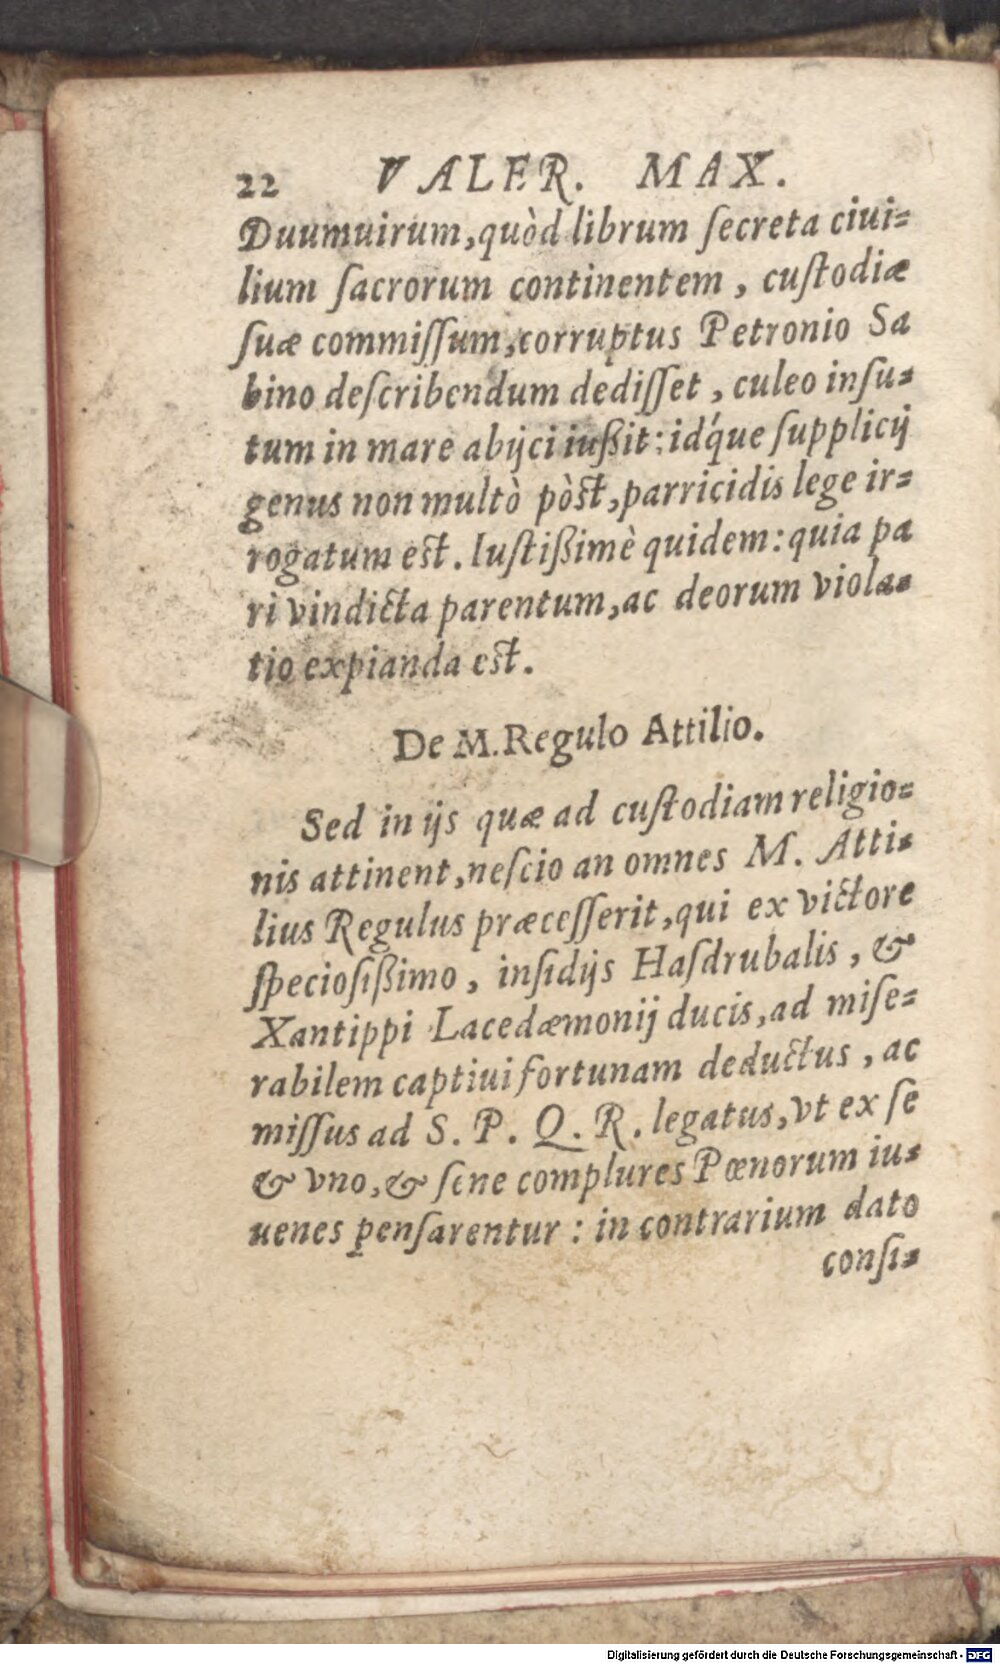 22 VALER. MAX.
Duumuirum, quòd librum ſecreta ciui=
lium ſacrorum continentem, cuſtodiæ
ſuæ commiſſum, corruptus Petronio Sa
bino deſcribendum dediſſet, culeo inſu=
tum in mare abijci iußit: idq́ue ſupplicij
genus non multò pòst, parricidis lege ir=
rogatum est. Iuſtißimè quidem: quia pa
ri vindicta parentum, ac deorum viola=
tio expianda est.
De M. Regulo Attilio.
Sed in ijs quæ ad cuſtodiam religio=
nis attinent, neſcio an omnes M. Atti=
lius Regulus præceſſerit, qui ex victore
ſpecioſißimo, inſidijs Haſdrubalis, &
Xantippi Lacedæmonij ducis, ad miſe=
rabilem captiui fortunam deductus, ac
miſſus ad S. P. Q. R. legatus, vt ex ſe
& vno, & ſene complures Pœnorum iu=
uenes penſarentur: in contrarium dato
conſi=
Digitalisierung gefördert durch die Deutsche Forschungsgemeinschaft - DFG